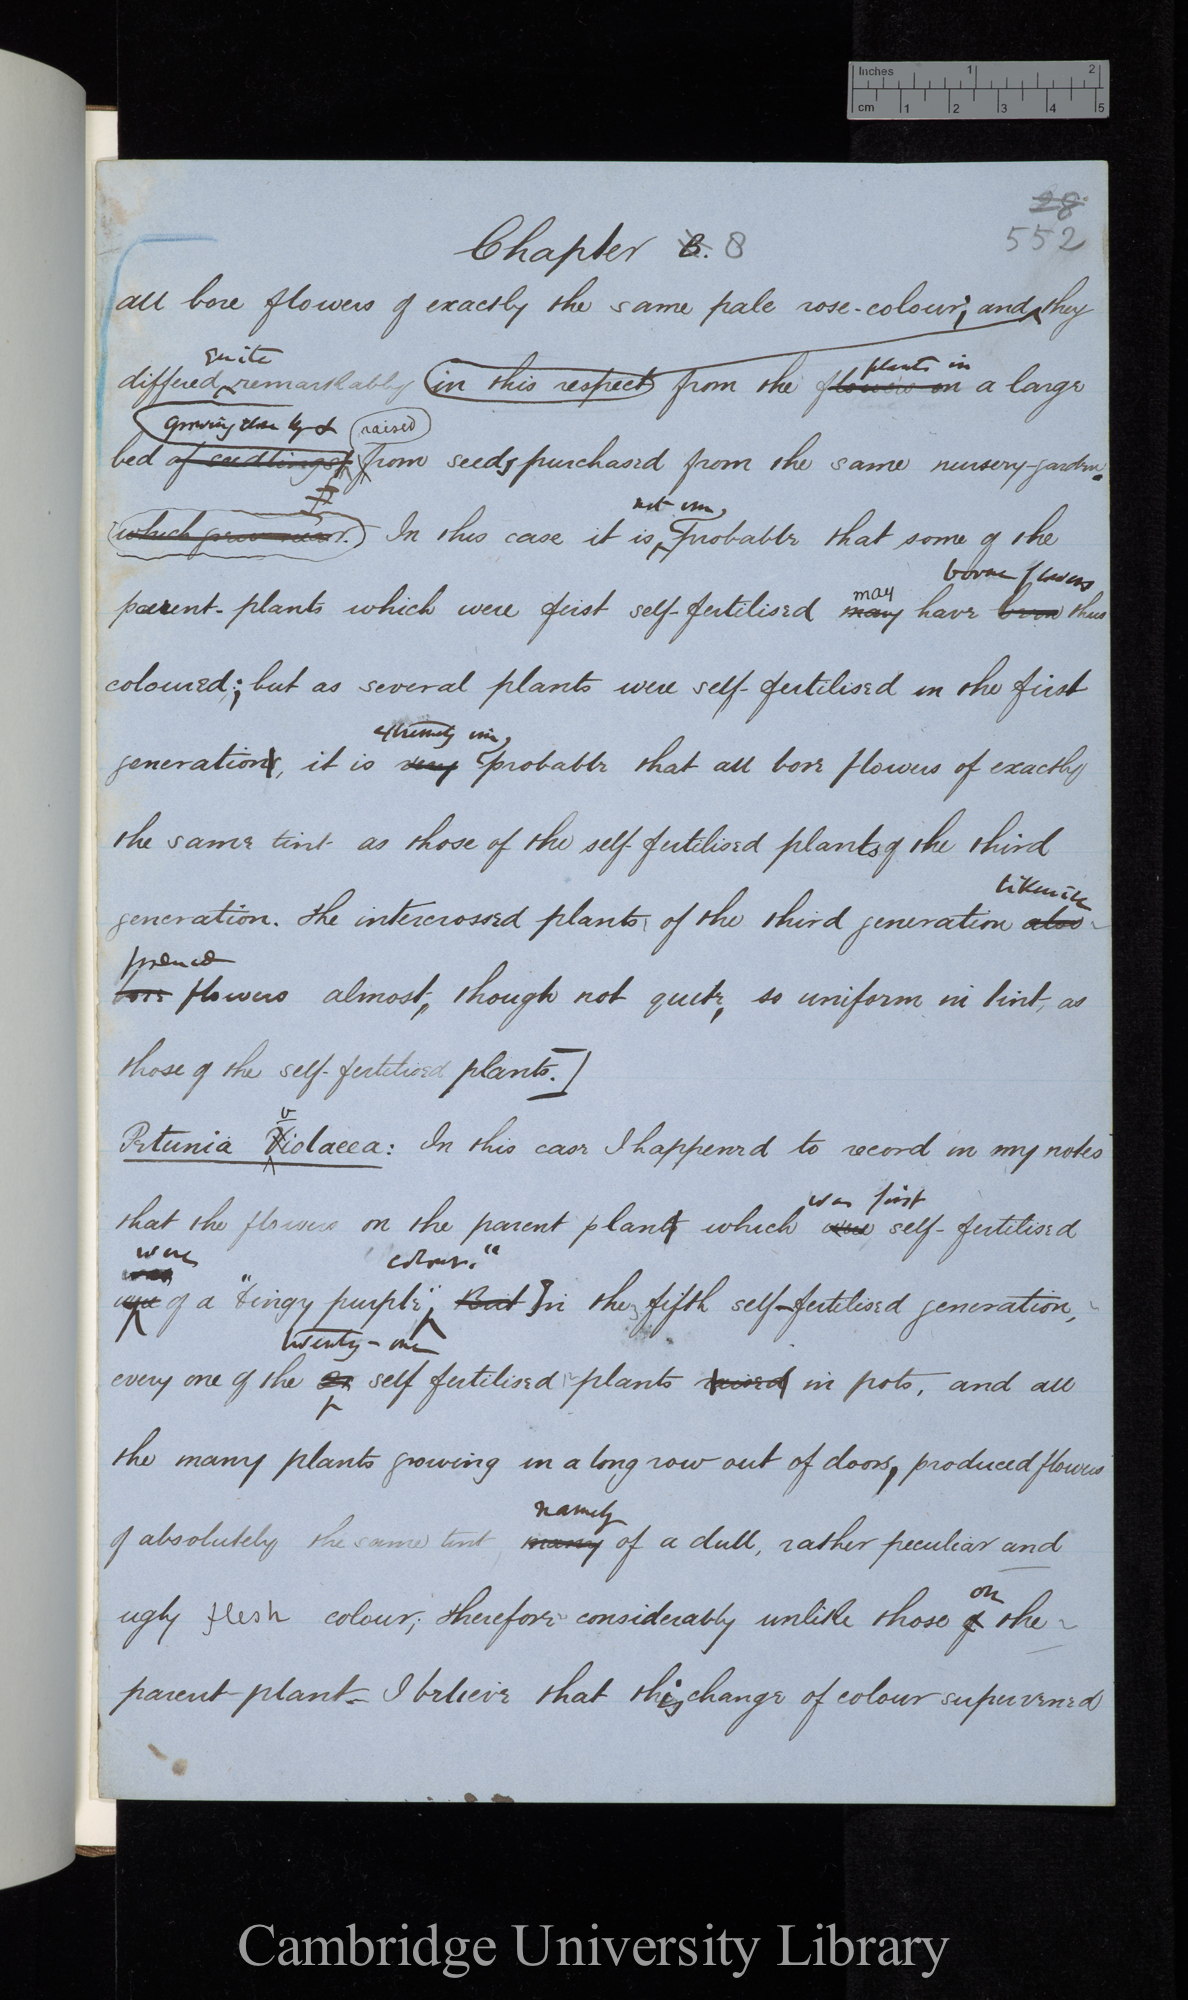 Inches 1 2
cm 1 2 3 4 5
28
552
Chapter 8. 8
all bore flowers of exactly the same pale rose-colour; and they
quite
plants in
differed remarkably in this respect from the flowers on a large
growing close by &
raised
bed of seedlings from seeds purchased from the same nursery-garden.
not im
which grew near. In this case it is probable that some of the
borne flowers
may
parent-plants which were first self-fertilised may have been thus
coloured; but as several plants were self-fertilised in the first
extremely im
generation, it is very probable that all bore flowers of exactly
the same tint as those of the self-fertilised plants of the third
likewise
generation. The intercrossed plants of the third generation also
produced
bore flowers almost, though not quite, so uniform in tint, as
those of the self-fertilised plants.]
v
Petunia Violacea: In this case I happened to record in my notes
was first
that the flowers on the parent plant which were self-fertilised
were
was
colour."
were of a "dingy purple", But In the fifth self-fertilised generation,
twenty-one
every one of the 21 self fertilised plants raised in pots, and all
the many plants growing in a long row out of doors, produced flowers
namely
of absolutely the same tint, many of a dull, rather peculiar and
on
ugly flesh colour; therefore considerably unlike those of the
parent-plant. I believe that this change of colour supervened
Cambridge University Library